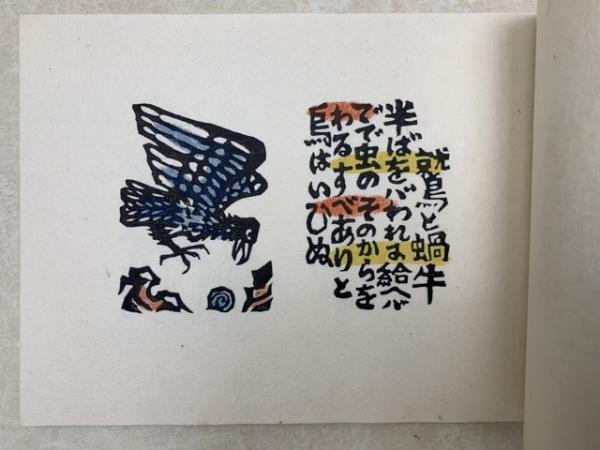 鷲と蝸牛
半ばをバわれに給へバ
でで虫のそのからを
わるすべありと
烏はいひぬ